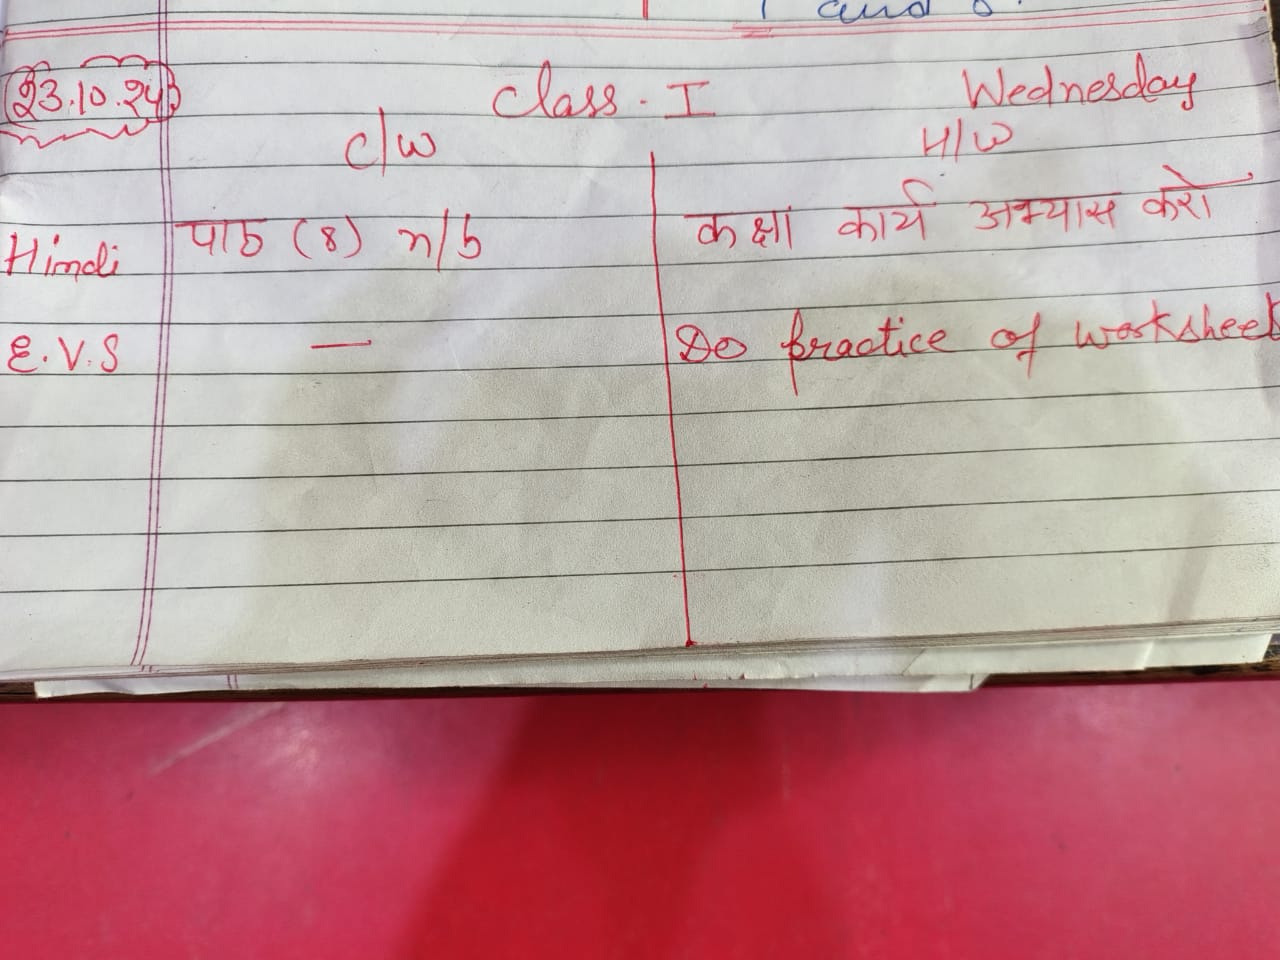 and
23.10.24 Class - I Wednesday
C/W H/W
Hindi पाठ (8) n/b कक्षा कार्य अभ्यास करो
E.V.S — Do practice of worksheet